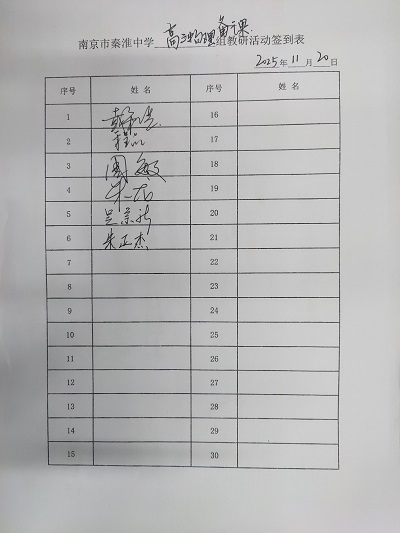 南京市秦淮中学高三物理备课组教研活动签到表
2025年11月20日
序号 姓名 序号 姓名
1 16
2 17
3 周敏 18
4 19
5 20
6 朱正杰 21
7 22
8 23
9 24
10 25
11 26
12 27
13 28
14 29
15 30